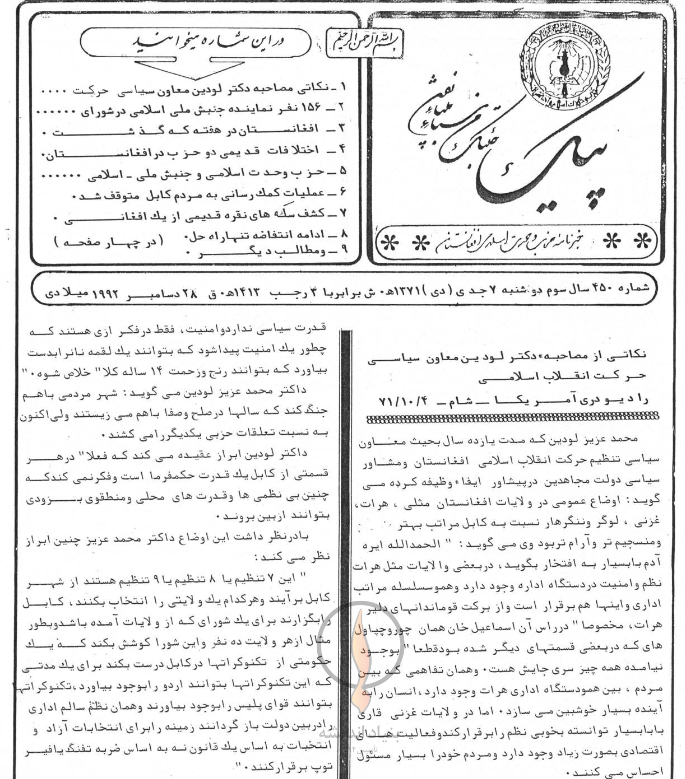 بسم الله الرحمن الرحیم
در این شماره میخوانید
۱ ـ نکاتی مصاحبه دکتر لودین معاون سیاسی حرکت ....
۲ ـ ۱۵۶ نفر نماینده جنبش ملی اسلامی در شورای ......
۳ ـ افغانستان در هفته که گذشت .
۴ ـ اختلافات قدیمی دو حزب در افغانستان.
۵ ـ حزب وحدت اسلامی و جنبش ملی ـ اسلامی ......
۶ ـ عملیات کمک رسانی به مردم کابل متوقف شد.
۷ ـ کشف سکه های نقره قدیمی از یك افغانی .
۸ ـ ادامه انتفاضه تنها راه حل. (در چهار صفحه)
۹ ـ ومطالب دیگر .
پیک
خبرنامه حزب وحدت اسلامی افغانستان
شماره ۴۵۰ سال سوم دوشنبه ۷ جدی (دی) ۱۳۷۱ه‍. ش برابر با ۳ رجب ۱۴۱۳ه‍. ق ۲۸ دسامبر ۱۹۹۲ میلادی
نکاتی از مصاحبه دکتر لودین معاون سیاسی
حرکت انقلاب اسلامی
رادیو دری آمریکا ـ شام ـ ۷۱/۱۰/۴
محمد عزیز لودین که مدت یازده سال بحیث معاون
سیاسی تنظیم حرکت انقلاب اسلامی افغانستان ومشاور
سیاسی دولت مجاهدین درپیشاور ایفاء وظیفه کرده می
گوید: اوضاع عمومی در ولایات افغانستان مثلی ، هرات،
غزنی ، لوگر وننگرهار نسبت به کابل مراتب بهتر
ومنسجیم تر وآرام تربود وی می گوید: " الحمدالله ایره
آدم بابسیار به افتخار بگوید، دربعضی والایات مثل هرات
نظم وامنیت دردستگاه اداره وجود دارد وهموسلسله مراتب
اداری واینها هم برقرار است واز برکت قوماندانهای دلیر
هرات، مخصوصا" درراس آن اسماعیل خان همان چوروچپاول
های که دربعضی قسمتهای دیگر شده بودقطعا" بوجود
نیامده همه چیز سری جایش هست. وهمان تفاهمی که بین
مردم ، بین همودستگاه اداری هرات وجود دارد، انسان رابه
آینده بسیار خوشبین می سازد. اما در ولایات غزنی قاری
بابابسیار توانسته بخوبی نظم رابرقرارکندوفعالیت های
اقتصادی بصورت زیاد وجود دارد ومردم خودرا بسیار مسئول
احساس می کنند.
قدرت سیاسی نداردوامنیت، فقط درفکر ازی هستند که
چطور یك امنیت پیداشود که بتوانند یك لقمه نانرابدست
بیاورد که بتوانند رنج وزحمت ۱۴ ساله کلا" خلاص شوه."
داکتر محمد عزیز لودین می گوید: شهر مردمی باهم
جنگ کند که سالها درصلح وصفا باهم می زیستند ولی اکنون
به نسبت تعلقات حزبی یکدیگررامی کشند.
داکتر لودین ابراز عقیده می کند که فعلا" درهر
قسمتی از کابل یك قدرت حکمفرما است وفکرنمی کندکه
چنین بی نظمی ها وقدرت های محلی ومنطقوی بزودی
بتوانند ازبین بروند.
بادرنظر داشت این اوضاع داکتر محمد عزیز چنین ابراز
نظر می کند:
" این ۷ تنظیم یا ۸ تنظیم یا ۹ تنظیم هستند از شهر
کابل برآیند وهرکدام یك ولایتی را انتخاب بکنند، کابل
رابگزارند برای یك شورای که از ولایات آمده باشدوبطور
مثال ازهر ولایت ده نفر واین شورا کوشش بکند که یك
حکومتی از تکنوکراتها درکابل درست بکند برای یك مدتی
که این تکنوکراتها بتوانند اردو رابوجود بیاورد، تکنوکراتها
بتوانند قوای پلیس رابوجود بیاورند وهمان نظم سالم اداری
رادربین دولت باز گردانند زمینه رابرای انتخابات آزاد و
انتخبات به اساس یك قانون نه به اساس ضربه تفنگ یافیر
توپ برقرارکنند."